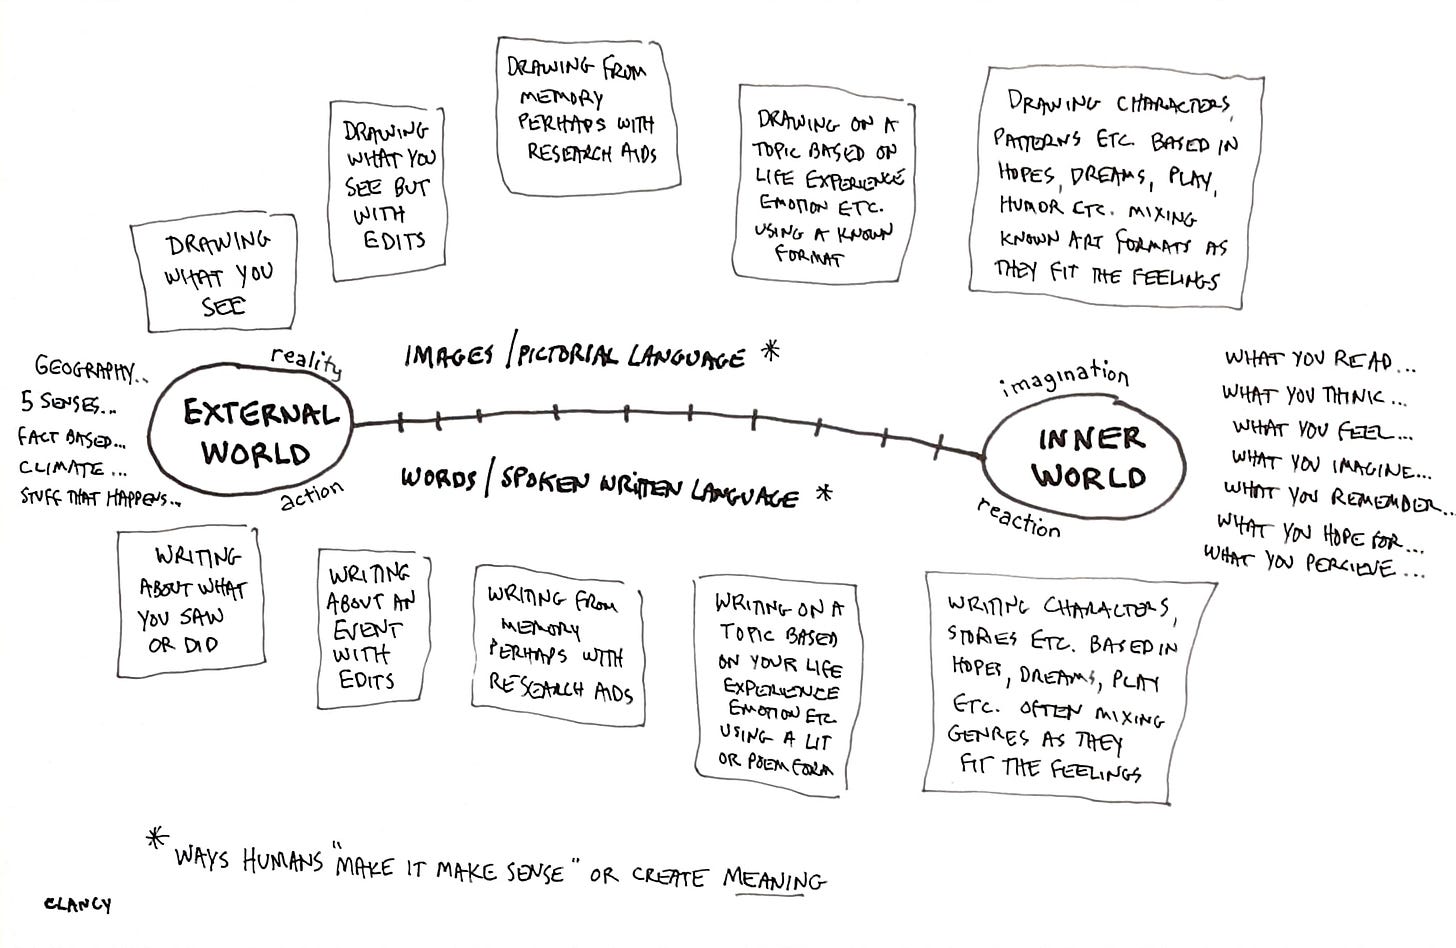 DRAWING
WHAT YOU
SEE
DRAWING
WHAT YOU
SEE BUT
WITH
EDITS
DRAWING FROM
MEMORY
PERHAPS WITH
RESEARCH AIDS
DRAWING ON A
TOPIC BASED ON
LIFE EXPERIENCE
EMOTION ETC.
USING A KNOWN
FORMAT
DRAWING CHARACTERS,
PATTERNS ETC. BASED IN
HOPES, DREAMS, PLAY,
HUMOR ETC. MIXING
KNOWN ART FORMATS AS
THEY FIT THE FEELINGS
GEOGRAPHY..
5 SENSES...
FACT BASED...
CLIMATE...
STUFF THAT HAPPENS...
reality
EXTERNAL
WORLD
action
IMAGES / PICTORIAL LANGUAGE *
WORDS / SPOKEN WRITTEN LANGUAGE *
imagination
INNER
WORLD
reaction
WHAT YOU READ...
WHAT YOU THINK...
WHAT YOU FEEL...
WHAT YOU IMAGINE...
WHAT YOU REMEMBER...
WHAT YOU HOPE FOR...
WHAT YOU PERCIEVE...
WRITING
ABOUT WHAT
YOU SAW
OR DID
WRITING
ABOUT AN
EVENT
WITH
EDITS
WRITING FROM
MEMORY
PERHAPS WITH
RESEARCH AIDS
WRITING ON A
TOPIC BASED
ON YOUR LIFE
EXPERIENCE
EMOTION ETC
USING A LIT
OR POEM FORM
WRITING CHARACTERS,
STORIES ETC. BASED IN
HOPES, DREAMS, PLAY
ETC. OFTEN MIXING
GENRES AS THEY
FIT THE FEELINGS
* WAYS HUMANS "MAKE IT MAKE SENSE" OR CREATE MEANING
CLANCY